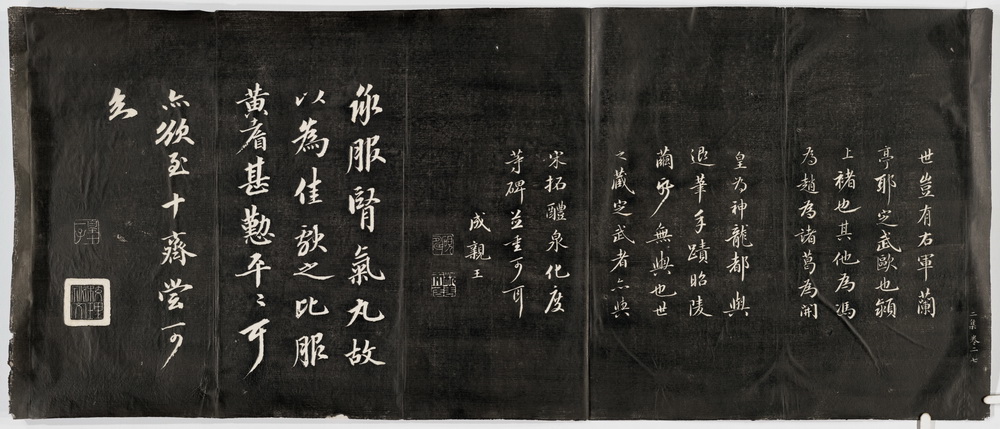 二集 卷二 七
世豈有右軍蘭
亭耶定武歐也潁
上褚也其他為馮
為趙為諸葛為開
皇為神龍都與
退筆手蹟昭陵
繭 無與也世
之藏定武者亦與
宋拓醴泉化度
等碑並重可耳
成親王
承服腎氣丸故
以為佳獻之比服
黃耆甚懃平〻耳
亦欲至十齊當可
知